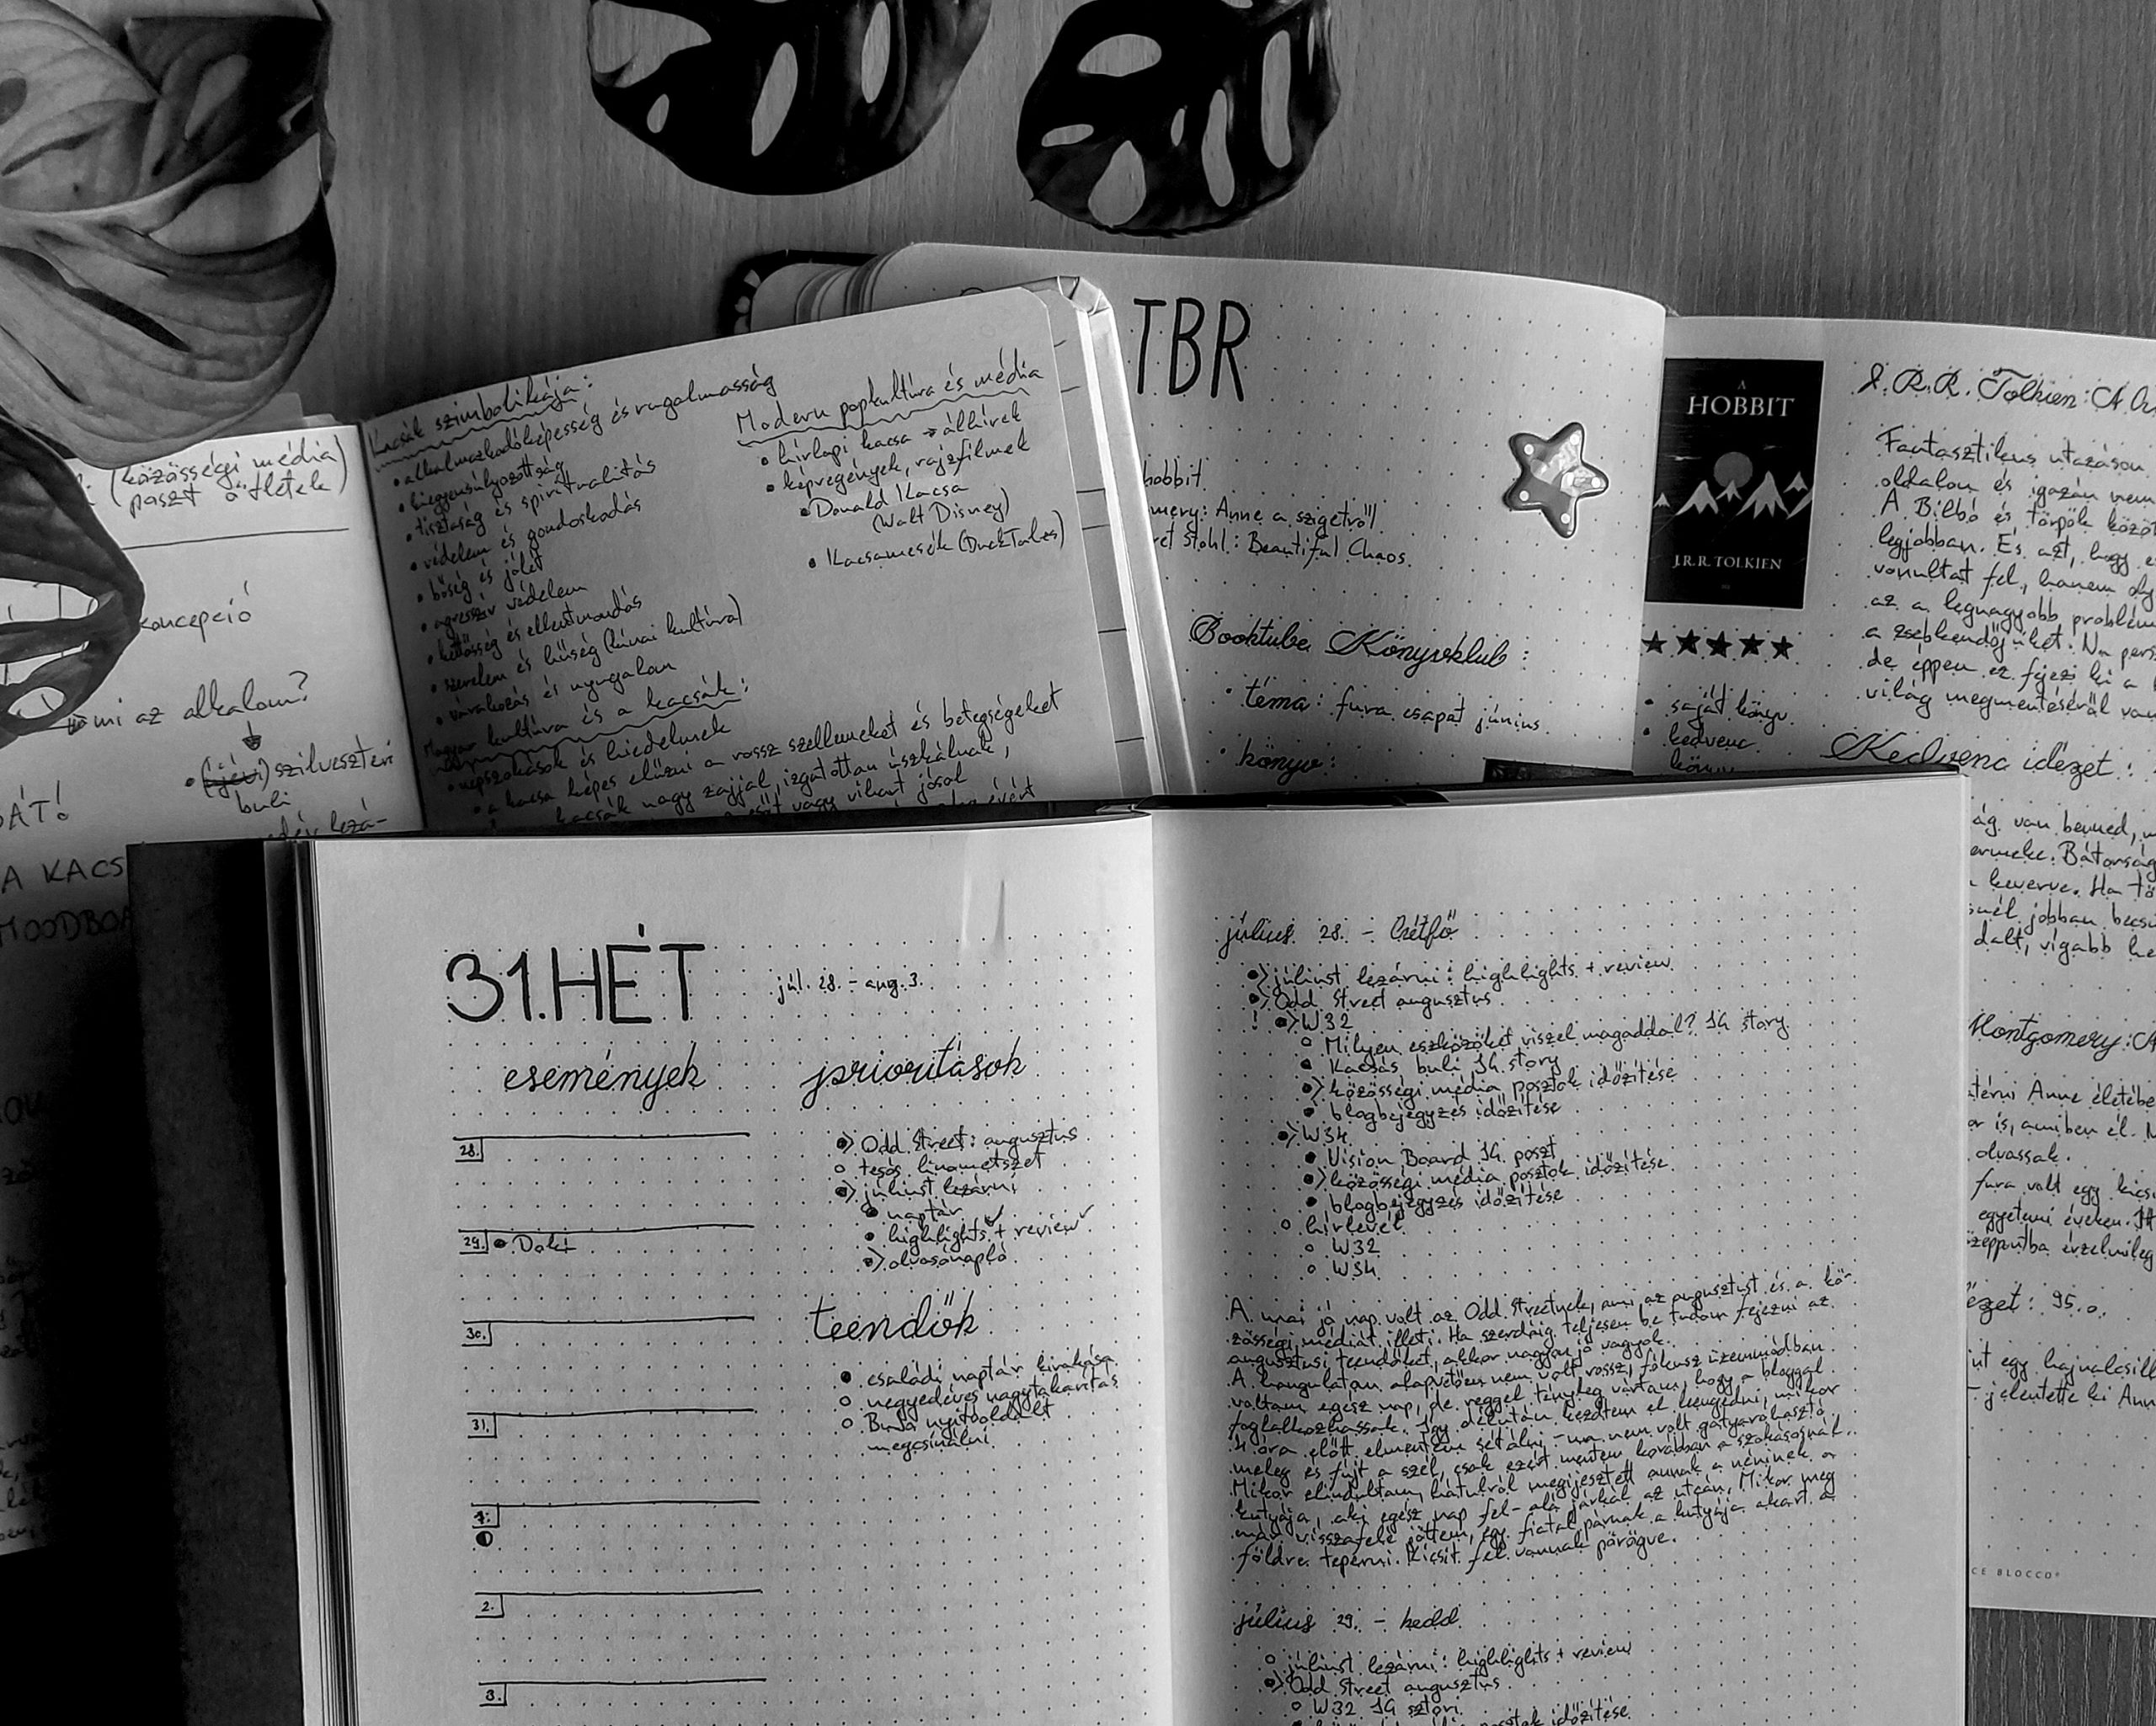 (közösségi média)
poszt ötletek
koncepció
mi az alkalom?
(újévi) szilveszteri
buli
A KACS
MOODBOA
Kacsák szimbolikája:
• alkalmazkodóképesség és rugalmasság
• kiegyensúlyozottság
• tisztaság és spiritualitás
• védelem és gondoskodás
• bőség és jólét
• agresszív védelem
• kettősség és ellentmondás
• szerelem és hűség (kínai kultúra)
• várakozás és nyugalom
Magyar kultúra és a kacsák:
• népszokások és hiedelmek
• a kacsa képes elűzni a rossz szellemeket és betegségeket
kacsák nagy zajjal, izgatottan úszkálnak,
esőt vagy vihart jósol
Modern popkultúra és média
• hírlapi kacsa → álhírek
• képregények, rajzfilmek
• Donald Kacsa
(Walt Disney)
• Kacsamesék (DuckTales)
TBR
hobbit
mery: Anne a szigetről
ret Stohl: Beautiful Chaos
Booktube Könyvklub:
• téma: fura csapat június
• könyv:
A
HOBBIT
J.R.R. TOLKIEN
★★★★★
• saját könyv
• kedvenc
könyv
J. R. R. Tolkien: A
Fantasztikus utazáson
oldalon és igazán nem
A Bilbó és törpök közöt
legjobban. És azt, hogy
vonultat fel, hanem
az a legnagyobb problém
a zsebkendőjüket. Na pers
de éppen ez fejezi ki a
világ megmentéséről van
Kedvenc idézet:
ág van benned,
ermeke. Bátorság
keverve. Ha tö
nél jobban becsü
dalt, vígabb he
Montgomery: A
atérni Anne életébe
or is, amiben él.
olvassak.
fura volt egy kics
egyetemi évek
zéppontba érzelmileg
ézet: 95.o.
int egy hajnalcsill
- jelentette ki Ann
CE BLOCCO®
31.HÉT
júl. 28. - aug. 3.
események
28.
29. • Doki
30.
31.
1.
2.
3.
prioritások
Odd Street: augusztus
tesós linómetszet
júliust lezárni
naptár
highlights + review
olvasónapló
teendők
• családi naptár kirakása
○ negyedéves nagytakarítás
○ BuJo nyitóoldalt
megcsinálni
július 28. - hétfő
•> júliust lezárni: highlights + review
•> Odd Street augusztus
! •> W32
○ Milyen eszközöket viszel magaddal? IG story
• Kacsás buli IG story
•> közösségi média posztok időzítése
• blogbejegyzés időzítése
•> W34
• Vision Board IG poszt
•> közösségi média posztok időzítése
• blogbejegyzés időzítése
○ hírlevél
○ W32
○ W34
A mai jó nap volt az Odd Streetnek, ami az augusztust és a kö-
zösségi médiát illeti. Ha szerdáig teljesen be tudom fejezni az
augusztusi teendőket, akkor nagyon jó vagyok.
A hangulatom alapvetően nem volt rossz, fókusz üzemmódban
voltam egész nap, de reggel tényleg vártam, hogy a bloggal
foglalkozhassak. Így délután kezdtem el leengedni, mikor
4 óra előtt elmentem sétálni - ma nem volt gatyarohasztó
meleg és fújt a szél, csak ezért mentem korábban a szokásosnál.
Mikor elindultam, hátulról megijesztett annak a néninek a
kutyája, aki egész nap fel-alá járkál az utcán. Mikor meg
már visszafelé jöttem, egy fiatal párnak a kutyája akart a
földre teperni. Kicsit fel vannak pörögve.
július 29. - kedd
○ júliust lezárni: highlights + review
•> Odd Street augusztus
○ W32 IG sztori
posztok időzítése